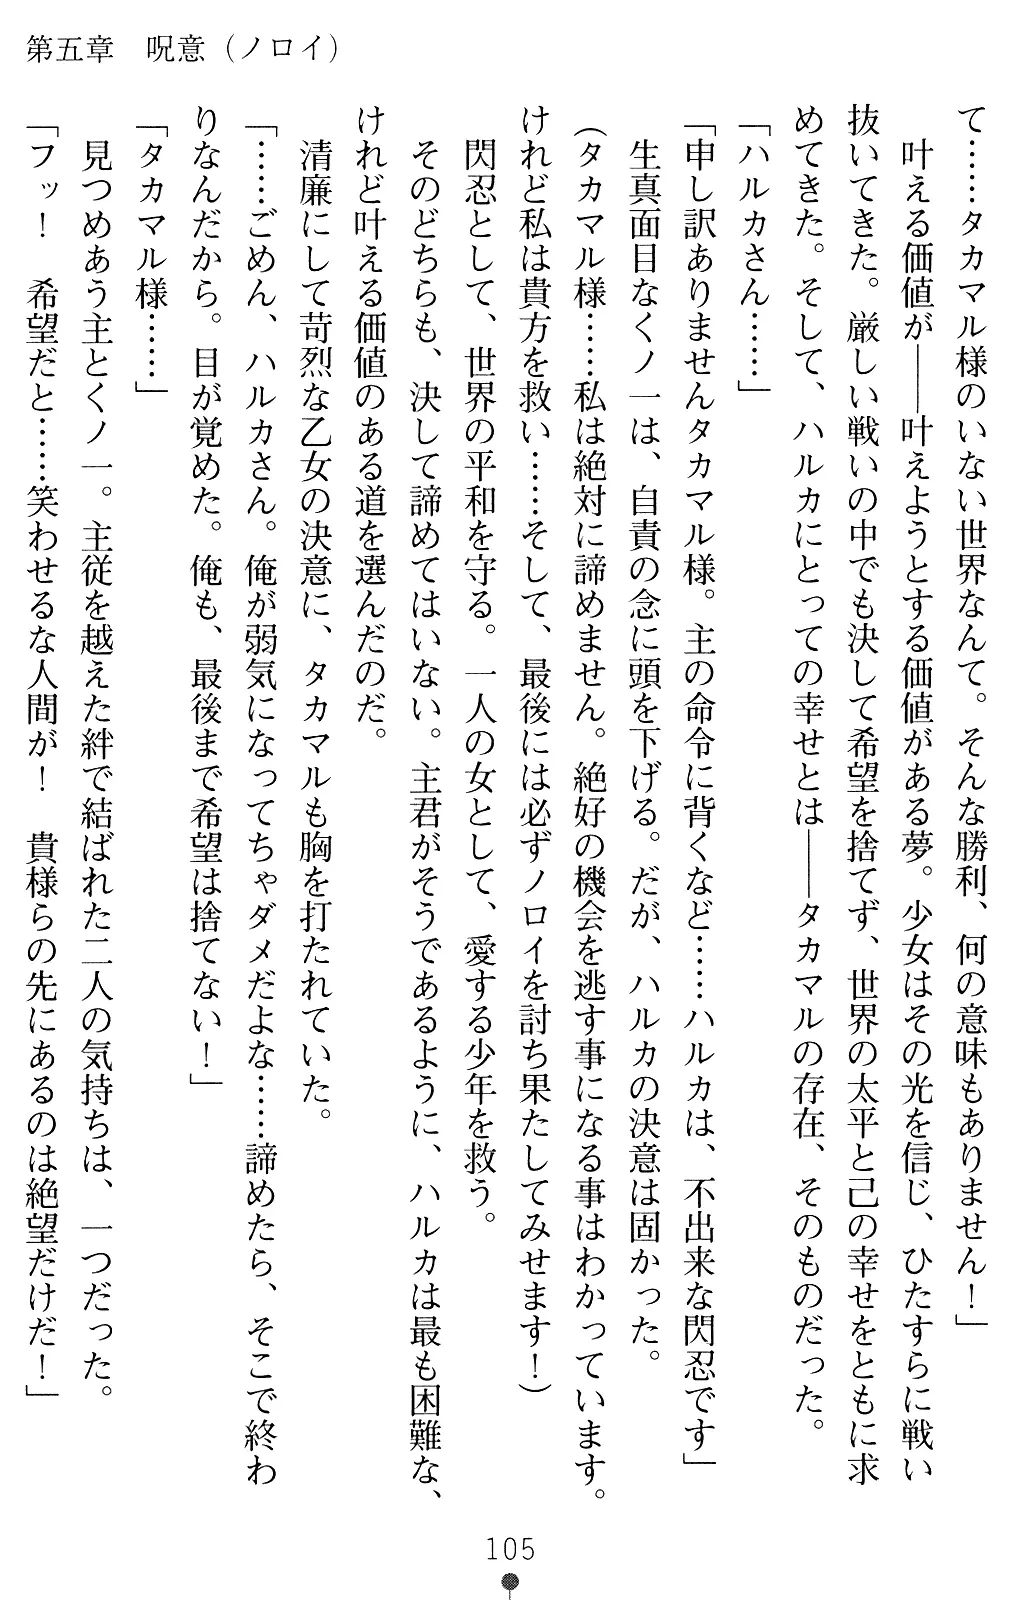 第五章　呪意（ノロイ）
て……タカマル様のいない世界なんて。そんな勝利、何の意味もありません！」
　叶える価値が――叶えようとする価値がある夢。少女はその光を信じ、ひたすらに戦い
抜いてきた。厳しい戦いの中でも決して希望を捨てず、世界の太平と己の幸せをともに求
めてきた。そして、ハルカにとっての幸せとは――タカマルの存在、そのものだった。
「ハルカさん……」
「申し訳ありませんタカマル様。主の命令に背くなど……ハルカは、不出来な閃忍です」
　生真面目なくノ一は、自責の念に頭を下げる。だが、ハルカの決意は固かった。
（タカマル様……私は絶対に諦めません。絶好の機会を逃す事になる事はわかっています。
けれど私は貴方を救い……そして、最後には必ずノロイを討ち果たしてみせます！）
　閃忍として、世界の平和を守る。一人の女として、愛する少年を救う。
　そのどちらも、決して諦めてはいない。主君がそうであるように、ハルカは最も困難な、
けれど叶える価値のある道を選んだのだ。
　清廉にして苛烈な乙女の決意に、タカマルも胸を打たれていた。
「……ごめん、ハルカさん。俺が弱気になってちゃダメだよな……諦めたら、そこで終わ
りなんだから。目が覚めた。俺も、最後まで希望は捨てない！」
「タカマル様……」
　見つめあう主とくノ一。主従を越えた絆で結ばれた二人の気持ちは、一つだった。
「フッ！　希望だと……笑わせるな人間が！　貴様らの先にあるのは絶望だけだ！」
105